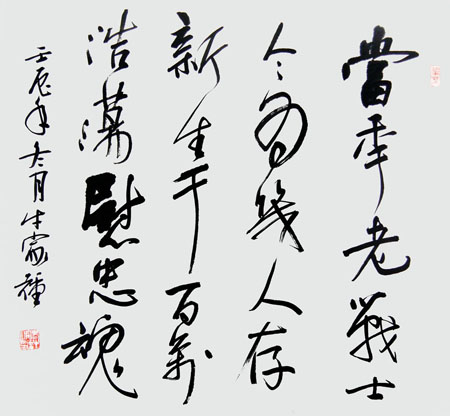 當年老戰士
今有幾人存
新生千百萬
浩蕩慰忠魂
壬辰年 月